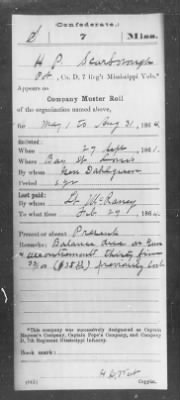 (Confederate.)
S 7 Miss.
H P. Scarborough
Pvt, Co. D, 7 Reg't Mississippi Vols.*
Appears on
Company Muster Roll
of the organization named above,
for May 1 to Aug 31, 1864.
Enlisted:
When 27 Sept, 1861.
Where Bay St Louis
By whom Gen Dahlgreen
Period 1 yr
Last paid:
By whom McRaney
To what time Feb 29, 1864.
Present or absent Present
Remarks: Balance due on Gun
& accoutrements thirty five
($35) previously
*This company was successively designated as Captain
Company, Captain Pope's Company, and Company
D, 7th Regiment Mississippi Infantry.
Book mark:
Copyist.